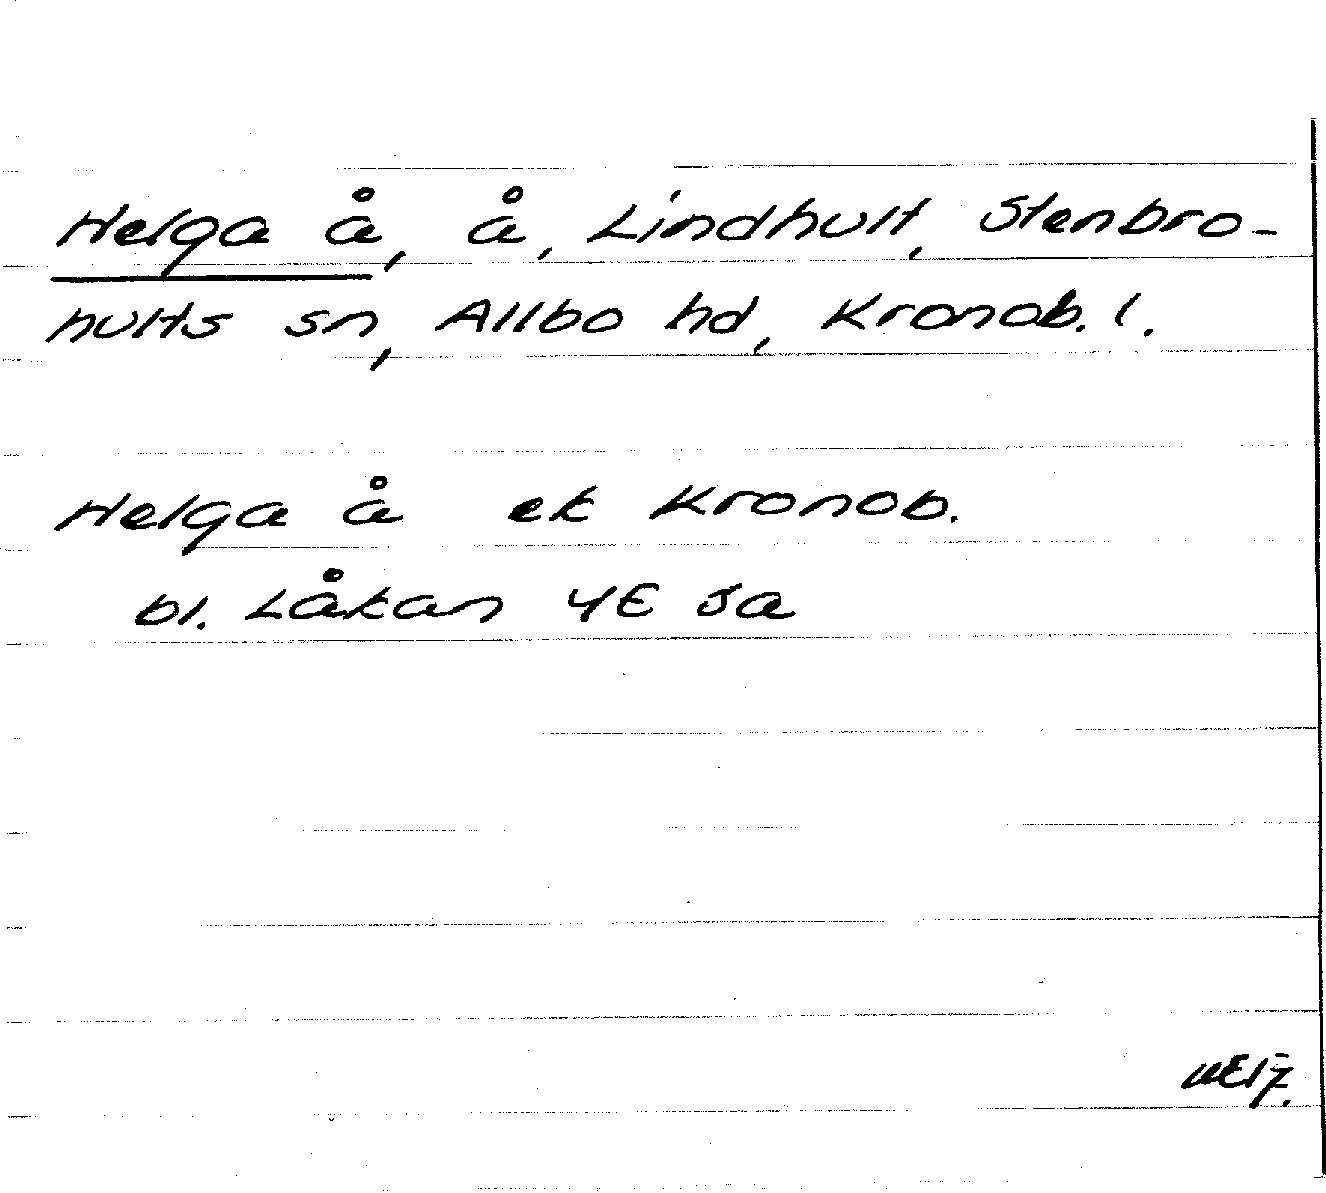 Helga å, å, Lindhult, Stenbro-
hults sn, Allbo hd, Kronob. l.
Helga å ek Kronob.
bl. Låkan 4E Sa